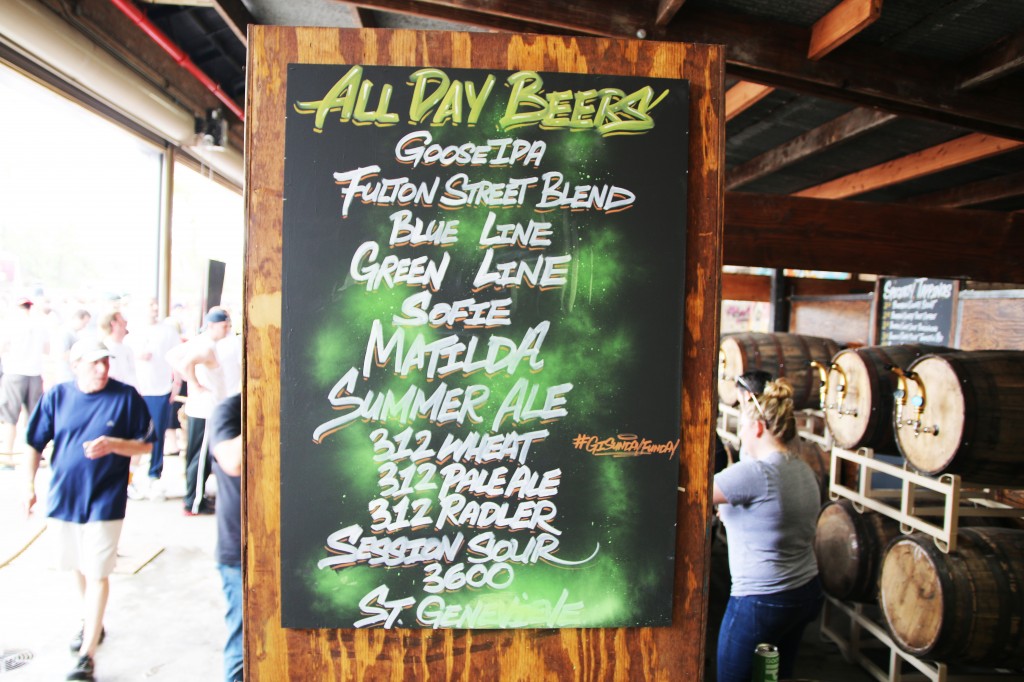 ALL DAY BEERS
GOOSE IPA
FULTON STREET BLEND
BLUE LINE
GREEN LINE
SOFIE
MATILDA
SUMMER ALE
312 WHEAT
#GISUNDAYFUNDAY
312 PALE ALE
312 RADLER
SESSION SOUR
3600
ST. GENEVIEVE